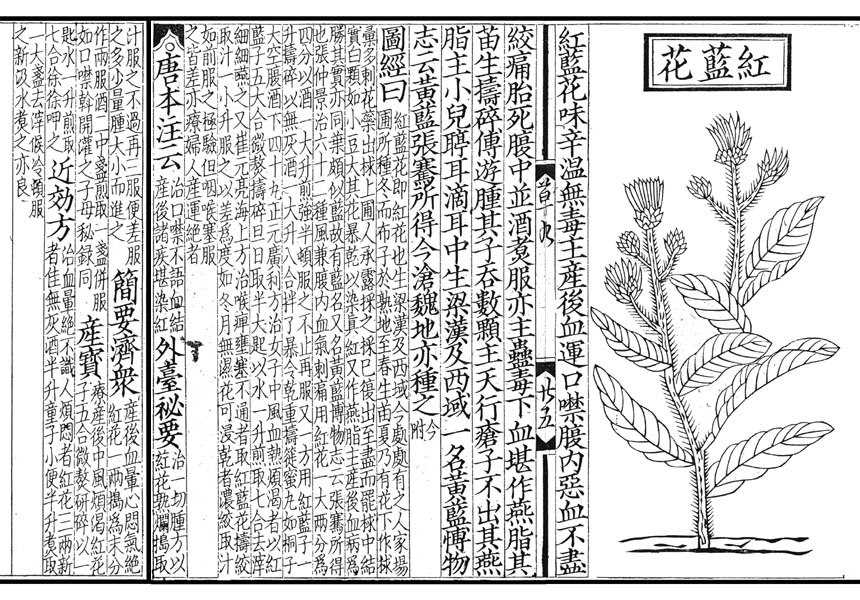 紅藍花
紅藍花味辛溫無毒主産後血運口噤腹内惡血不盡
廿五
絞痛胎死腹中並酒煮服亦主蠱毒下血堪作燕脂其
苗生擣碎傅游腫其子吞數顆主天行瘡子不出其燕
脂主小兒聤耳滴耳中生梁漢及西域一名黃藍愽物
志云黃藍張騫所得今滄魏地亦種之 今附
圖經曰
紅藍花即紅花也生梁漢及西域今處處有之人家場
圃所種冬而布子於熟地至春生苗夏乃有花下作梂
彙多刺花蘂出梂上圃人承露採之採已復出至盡而罷梂中結
實白顆如小豆大其花暴乾以染真紅又作燕脂主產後血病爲
勝其實亦同葉頗似藍故有藍名又名黃藍博物志云張騫所得
也張仲景治六十二種風兼腹内血氣刺痛用紅花一大兩分爲
四分以酒一大升煎強半頓服之不止再服又一方用紅藍子一
升擣碎以無灰酒一大升八合拌了暴令乾重擣篵蜜丸如桐子
大空腹酒下四十丸正元廣利方治女子中風血熱煩渴者以紅
藍子五大合微熬擣碎旦日取半大匙以水一升煎取七合去滓
細細嚥之又崔元亮海上方治喉痺壅塞不通者取紅藍花擣絞
取汁一小升服之以差爲度如冬月無濕花可浸乾者濃絞取汁
如前服之極驗但咽喉塞服
之皆差亦療婦人產運絕者
唐本注云
治口噤不語血結
產後諸疾堪染紅
外臺祕要
治一切腫方以
紅花熟爛擣取
汁服之不過再三服便差服
之多少量腫大小而進之
簡要濟衆
產後血暈心悶氣絶
紅花一兩搗爲末分
作兩服酒二中盞煎取一盞併服
如口噤斡開灌之子母秘錄同
産寶
療產後中風煩渴紅花
子五合微熬研碎以一
匙水一升煎取
七合徐徐呷之
近効方
治血暈絶不識人煩悶者紅花三兩新
者佳無灰酒半升童子小便半升煮取
一大盞去滓候冷頓服
之新汲水煮之亦良